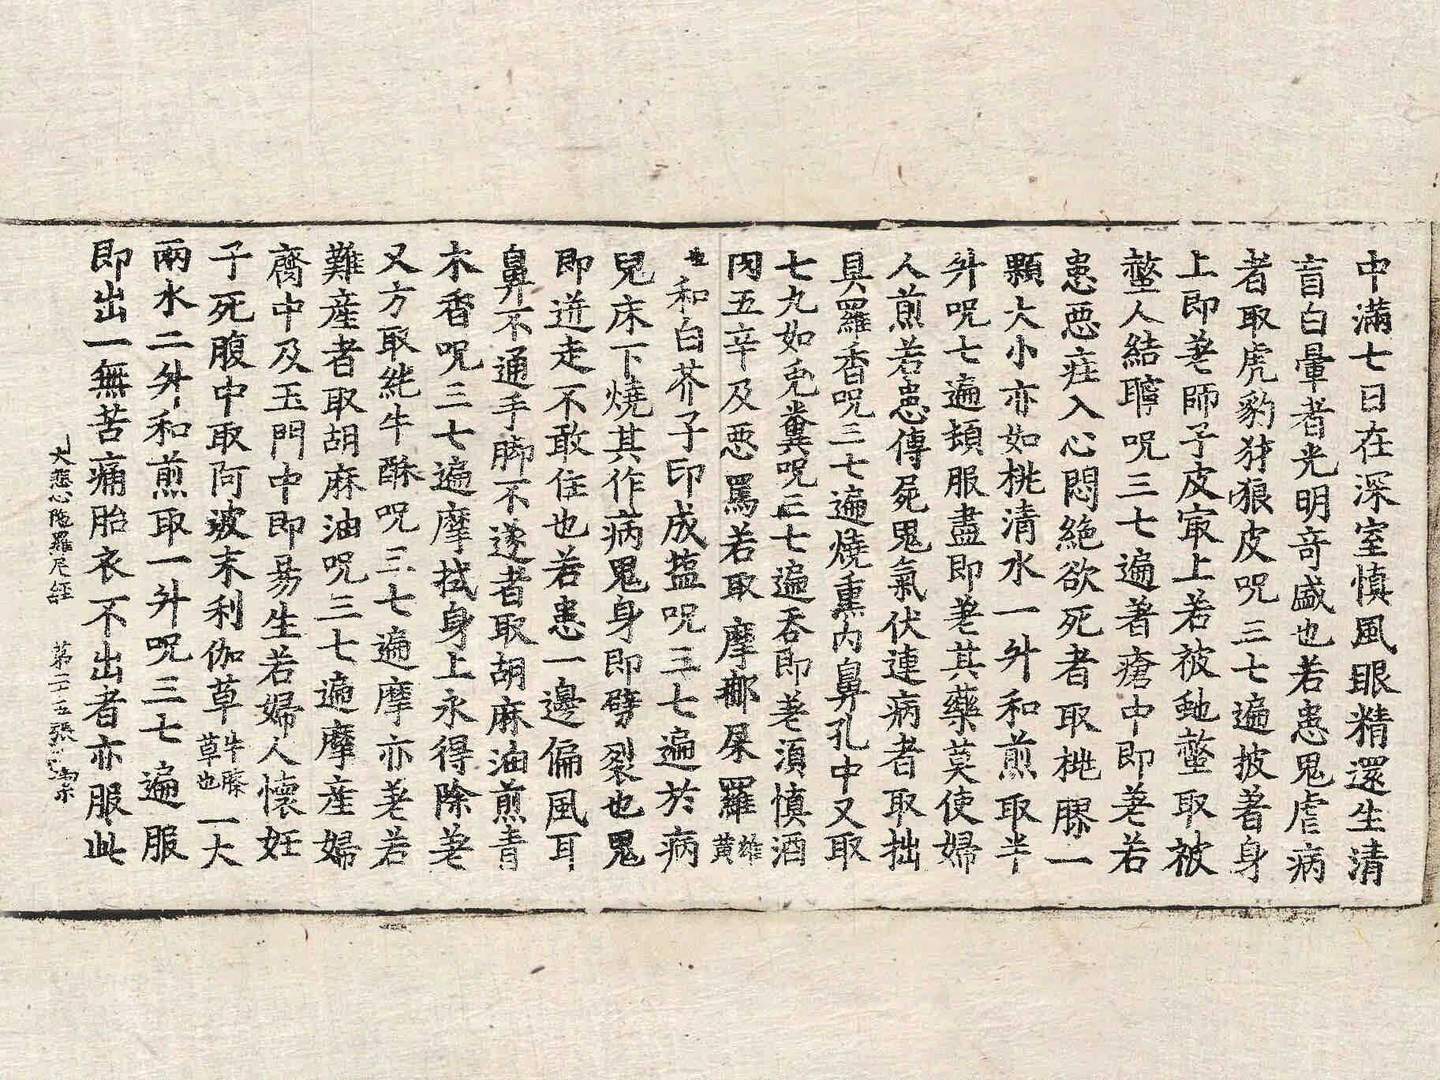 中滿七日在深室慎風眼精還生清
盲白暈者光明奇盛也若患鬼虐病
者取虎豹犲狼皮呪三七遍披著身
上即差師子皮寂上若被虵螫取被
螫人結聹呪三七遍著瘡中即差若
患惡疰入心悶絶欲死者取桃膠一
顆大小亦如桃清水一升和煎取半
升呪七遍頓服盡即差其藥莫使婦
人煎若患傳屍鬼氣伏連病者取拙
具羅香呪三七遍燒熏内鼻孔中又取
七丸如兎糞呪三七遍吞即差湏慎酒
肉五辛及惡罵若取摩㮈屎羅雄黄
也和白芥子印成塩呪三七遍於病
兒床下燒其作病鬼身即劈裂也鬼
即迸走不敢住也若患一邊偏風耳
鼻不通手脚不遂者取胡麻油煎青
木香呪三七遍摩拭身上永得除差
又方取純牛酥呪三七遍摩亦差若
難産者取胡麻油呪三七遍摩産婦
齊中及玉門中即易生若婦人懷妊
子死腹中取阿波末利伽草牛膝草也一大
兩水二升和煎取一升呪三七遍服
即出一無苦痛胎衣不出者亦服此
大悲心陁羅尼經 第二十五張